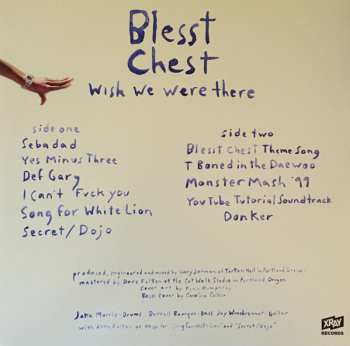 Blesst
Chest
Wish we were there
side one
Sebadad
Yes Minus Three
Def Gary
I Can't Fuck you
Song for White Lion
Secret/Dojo
side two
Blesst Chest Theme Song
T Boned in the Daewoo
Monster Mash '99
YouTube Tutorial Soundtrack
Donker
produced, engineered and mixed by Gary Jarman at Tartan Hall in Portland, Oregon
mastered by Dave Fulton at the Cat Walk Studio in Portland, Oregon
Cover Art by
Back Cover by Caroline
Jana Morris-Drums, Darrell Bourque-Bass, Jay Winebrenner-Guitar
with on "Song for White Lion" and "Secret/Dojo"
XRAY
RECORDS